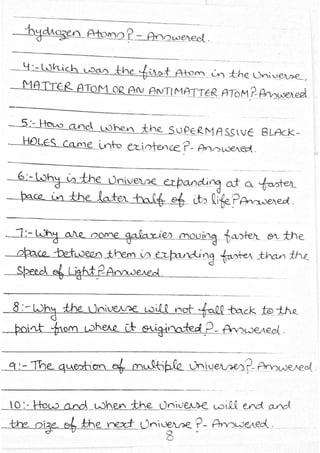 hydrogen Atoms? - Answered.
4:- Which was the first Atom in the Universe,
MATTER ATOM OR AN ANTIMATTER ATOM?- Answered
5:- How and when the SUPERMASSIVE BLACK-
HOLES came into existence? - Answered.
6:- Why is the Universe expanding at a faster
pace in the later half of its life? Answered.
7:- Why are some galaxies moving faster or the
space between them is expanding faster than the
Speed of Light? Answered.
8:- Why the Universe will not fall back to the
point from where it originated? - Answered.
9:- The question of multiple Universes? - Answered.
10:- How and when the Universe will end and
the size of the next Universe? - Answered.
8